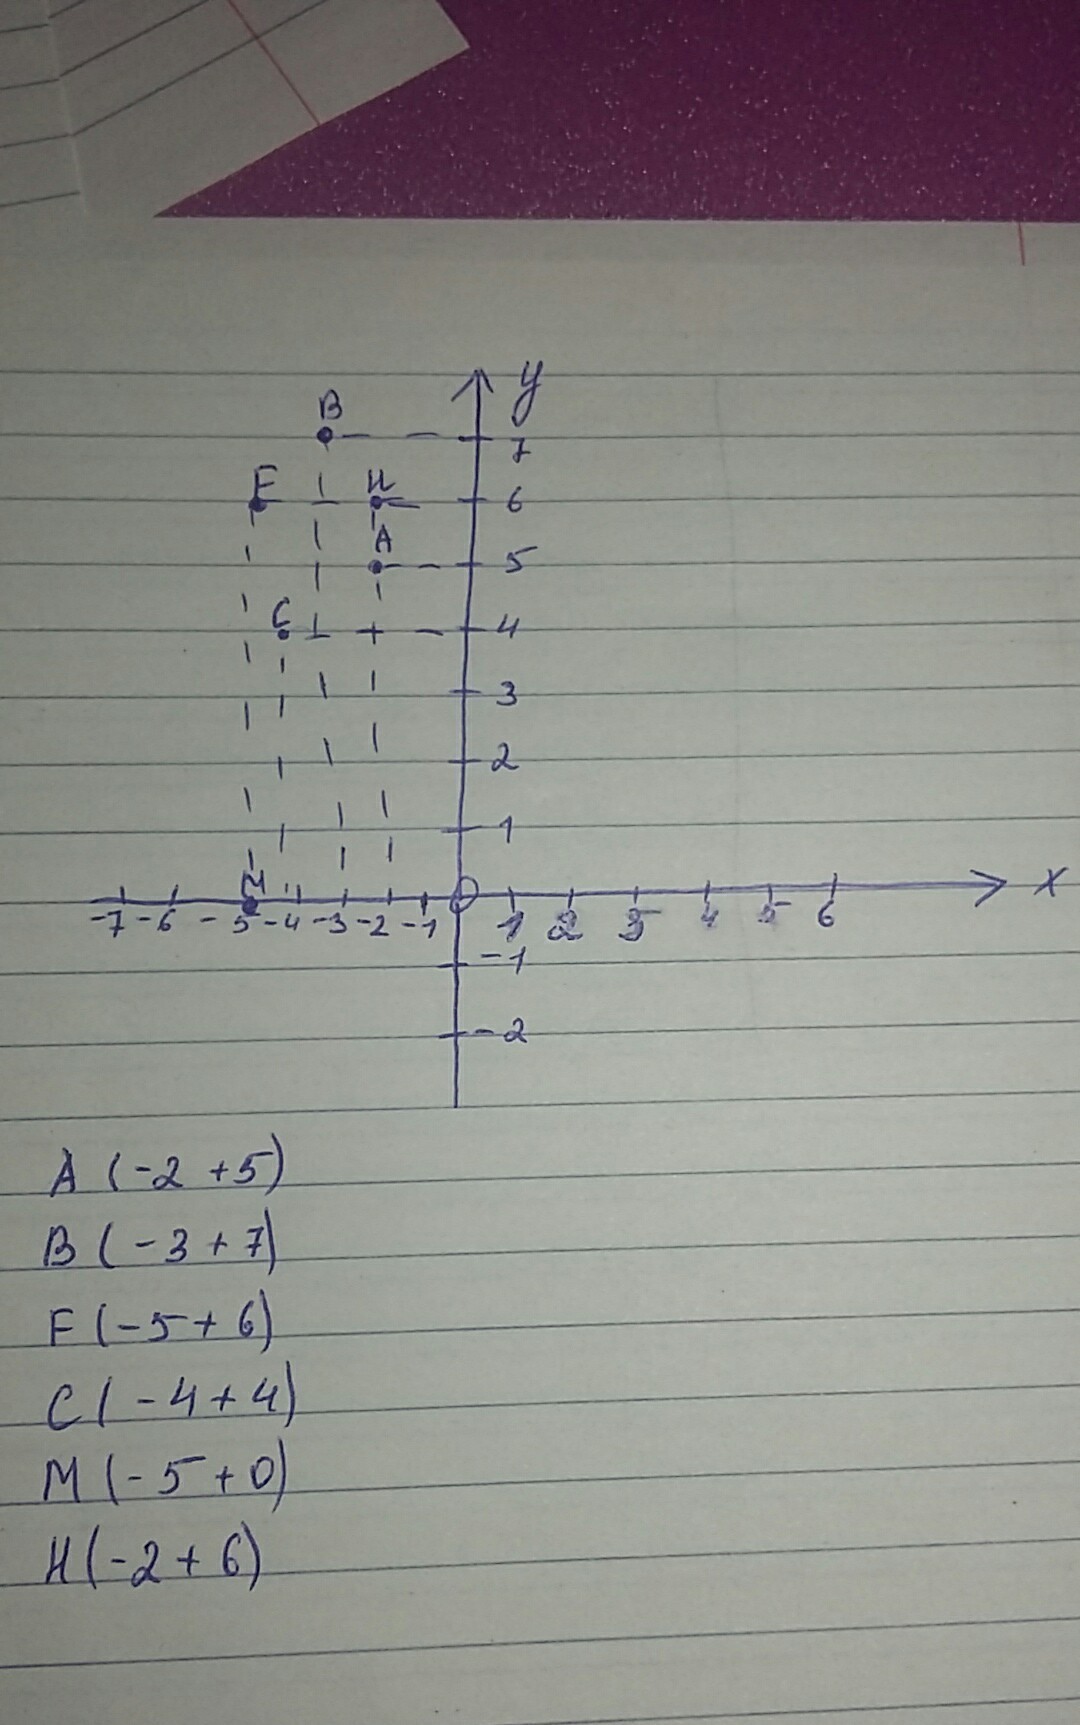 y
B
7
F H 6
A 5
C 4
3
2
1
M
x
-7 -6 -5 -4 -3 -2 -1 0 1 2 3 4 5 6
-1
-2
A (-2 +5)
B (-3 +7)
F (-5 + 6)
C (-4 + 4)
M (-5 + 0)
H (-2 + 6)